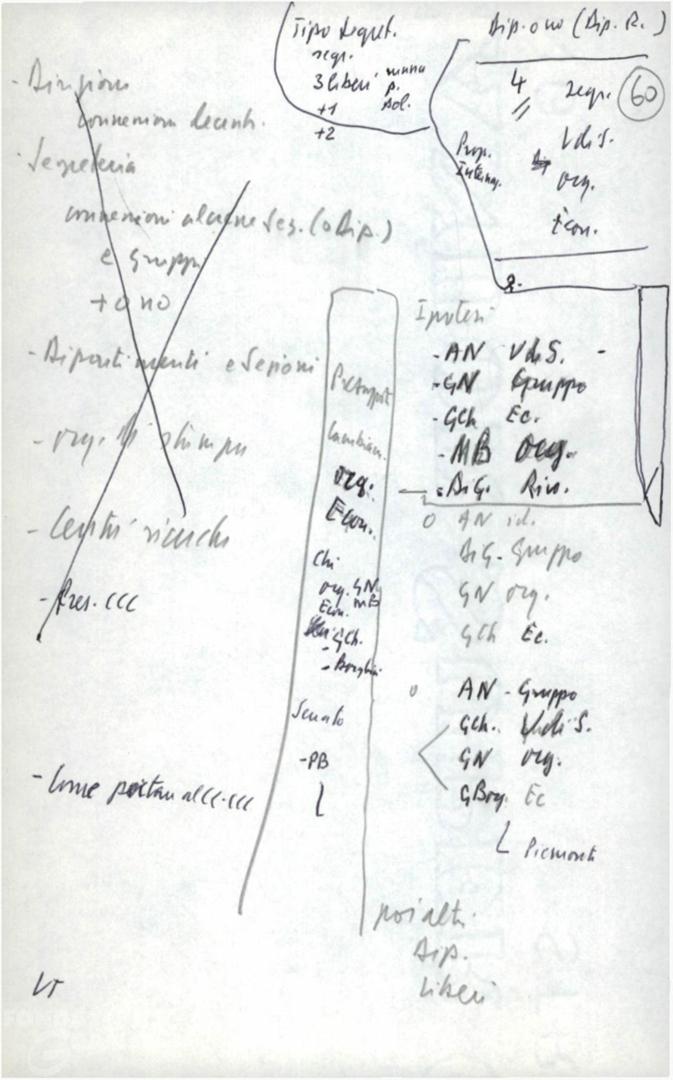 Tipo segret.
segr.
3 liberi
+1
+2
Dip. o no (Dip. R.)
4 segr. 60
V di S.
Prop.
Internaz.
org.
Econ.
- Direzione
connessioni decentr.
- Segreteria
connessioni alcune Sez. (o Dip.)
e Gruppi
+ o no
- Dipartimenti e Sezioni
- org. di stampa
- Centri ricerche
- Pres. CCC
- Come portare al CC-CCC
org.
Econ.
Chi
org. GN
Econ. MB
GCh.
- Borghini
Senato
- PB
Ipotesi
- AN V di S. -
- GN Gruppo
- GCh Ec.
- MB Org.
- DiG. Rin.
o AN id.
DiG. Gruppo
GN org.
GCh Ec.
o AN - Gruppo
GCh. V di S.
GN org.
GBorg. Ec
Piemonte
poi altri
Dip.
liberi